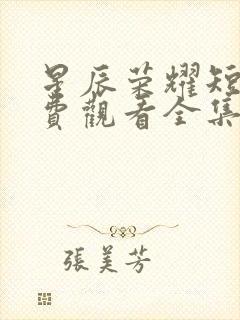 星辰荣耀短
費觀看全集
張美芳